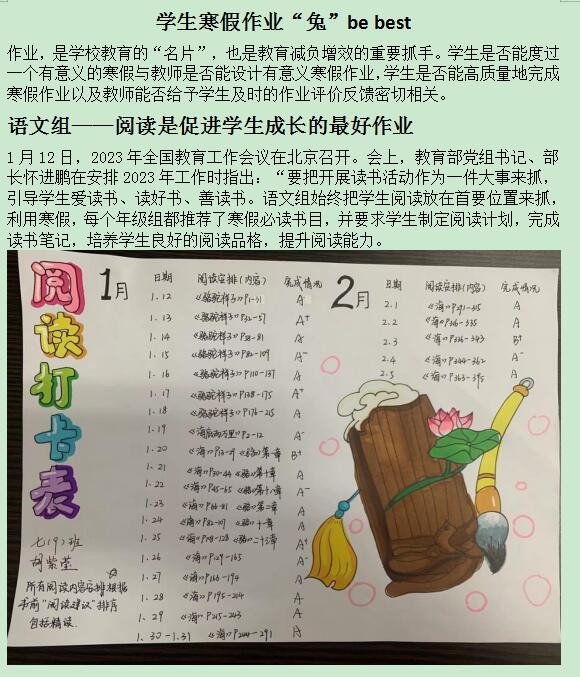 学生寒假作业“兔”be best
作业，是学校教育的“名片”，也是教育减负增效的重要抓手。学生是否能度过
一个有意义的寒假与教师是否能设计有意义寒假作业，学生是否能高质量地完成
寒假作业以及教师能否给予学生及时的作业评价反馈密切相关。
语文组——阅读是促进学生成长的最好作业
1月12日，2023年全国教育工作会议在北京召开。会上，教育部党组书记、部
长怀进鹏在安排2023年工作时指出：“要把开展读书活动作为一件大事来抓，
引导学生爱读书、读好书、善读书。语文组始终把学生阅读放在首要位置来抓，
利用寒假，每个年级组都推荐了寒假必读书目，并要求学生制定阅读计划，完成
读书笔记，培养学生良好的阅读品格，提升阅读能力。
阅读打卡表
七(9)班
胡紫莹
所有阅读内容安排根据
书前“阅读建议”排序
包括精读
1月
日期 阅读安排(内容) 完成情况
1.12 《骆驼祥子》P1-31 A
1.13 《骆驼祥子》P32-57 A+
1.14 《骆驼祥子》P58-81 A
1.15 《骆驼祥子》P82-109 A-
1.16 《骆驼祥子》P110-137 A
1.17 《骆驼祥子》P138-175 A+
1.18 《骆驼祥子》P176-215 A
1.19 《海底两万里》P2-12 A-
1.20 《海》P13-29 《骆》第一章 B+
1.21 《海》P30-44 A
1.22 《海》P45-65 A-
1.23 《海》P66-81 A
1.24 《海》 A
1.25 《海》 A+
1.26 《海》P129-165 A
1.27 《海》P166-194 A
1.28 《海》P195-214 A
1.29 《海》P215-243 A
1.30-1.31 《海》P244-291 A
2月
日期 阅读安排(内容) 完成情况
2.1 《海》 A
2.2 《海》P316-335 A
2.3 《海》P336-343 B+
2.4 《海》P344-362 A-
2.5 《海》P363-395 A